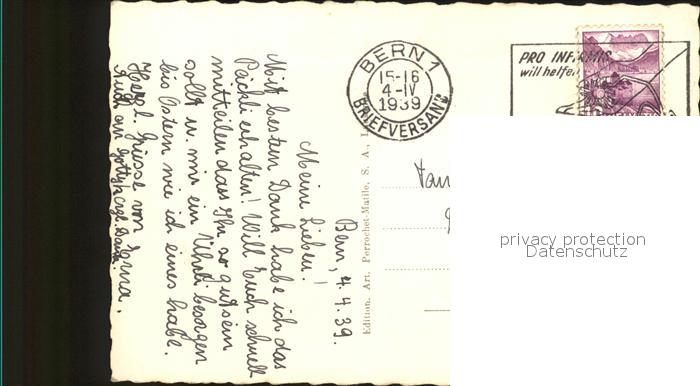 Bern, 4. 4. 39.
Meine Lieben!
Mit bestem Dank habe ich das
Päckli erhalten! Will Euch schnell
mitteilen dass Ihr so gut sein
sollt u. mir ein besorgen
bis Ostern wie ich eines habe.
Herzl. Grüsse von Erna.
Auch an
Edition. Art. Perrochet-Matile, S. A.,
BERN 1
15-16
4-IV
1939
BRIEFVERSAND
PRO INFIRMIS
will helfen
Fam
privacy protection
Datenschutz